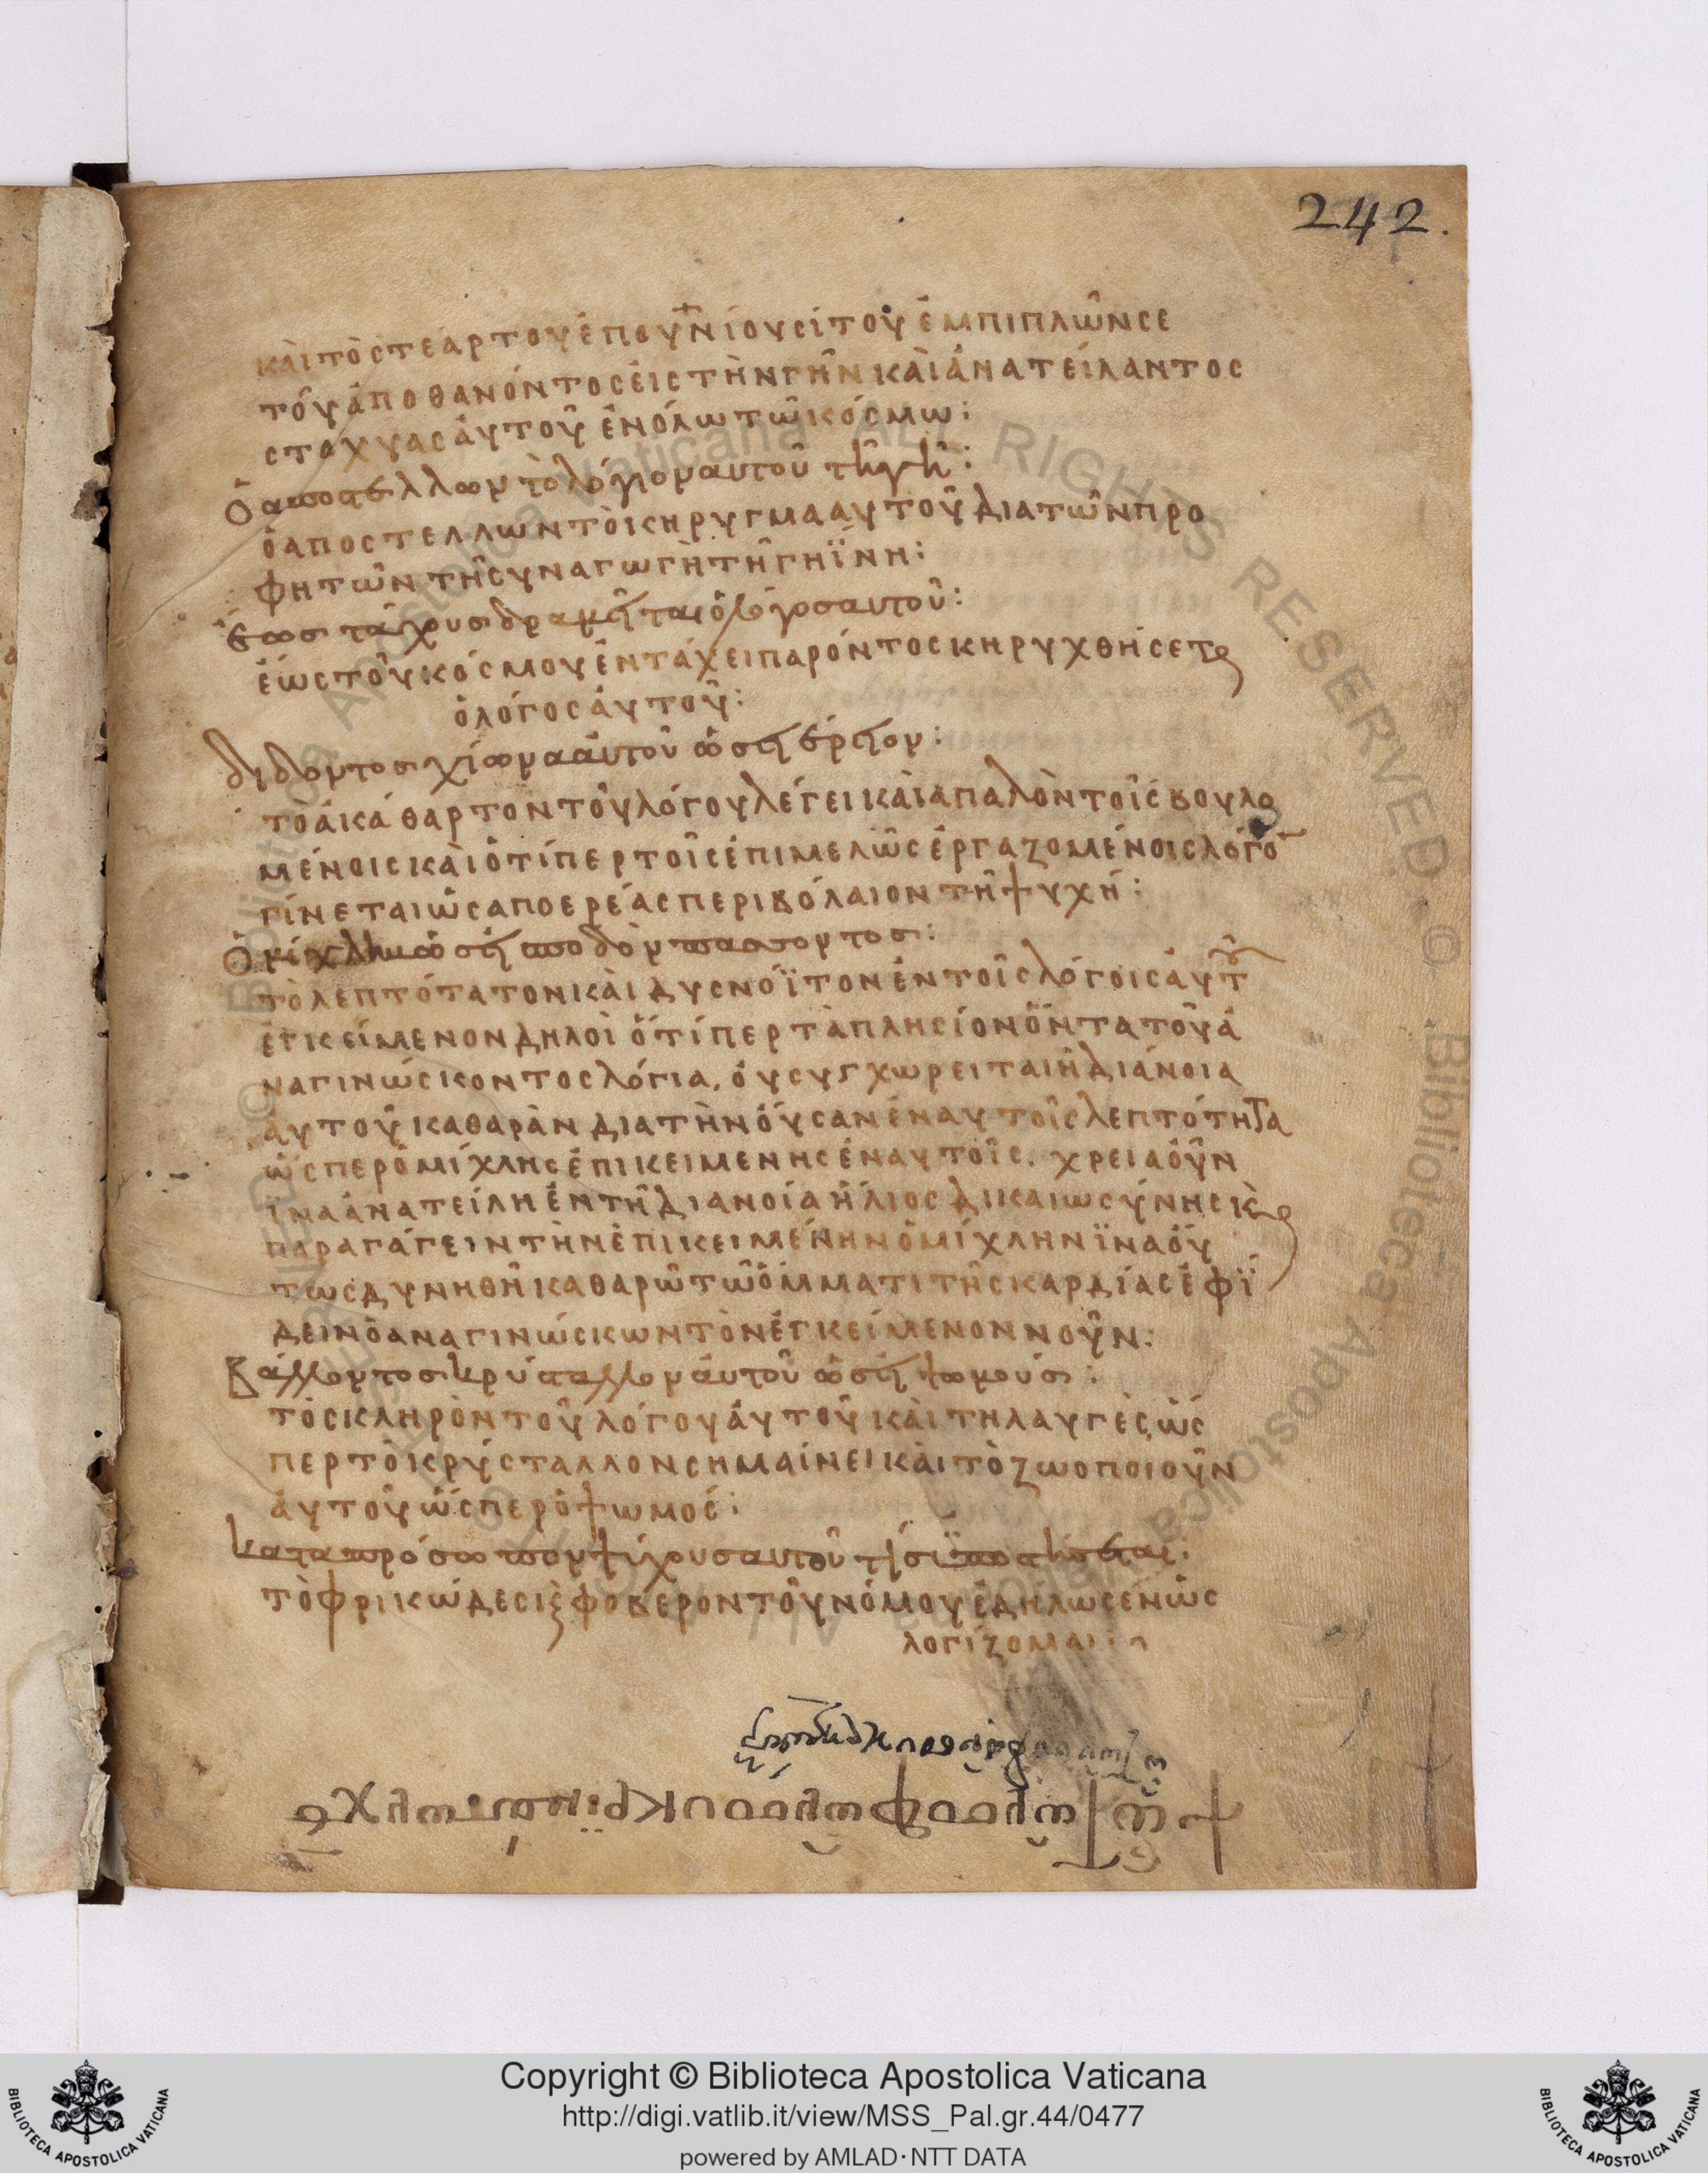 242.
κὰι τὸ στεάρ τοῦ ἐπουνίου σίτου ἐμπιπλῶν σε
τοῦ ἀποθανόντος ἐις τὴν γῆν κὰι ἀνατείλαντος
στοχυας ἀυτοῦ ἐν ὅλω τῶ κόσμω:
Ὁ αποστέλλων τὸ λόγιον αυτοῦ τῆ γῆ:
ὁ αποστέλλων τὸ κηρυγμα αυτοῦ διὰ τῶν προ
φητῶν τῆ συναγωγὴ τῆ γηΐνη:
ἕως τάχους δραμεῖται ὁ λόγος αυτοῦ:
ἕως τοῦ κόσμου ἐν τάχει παρόντος κηρυχθήσεται
ὁ λόγος ἀυτοῦ:
διδοντος χίονα ἀυτοῦ ὡσεὶ έριον:
τὸ ἀκάθαρτον τοῦ λόγου λέγει κὰι απαλὸν τοῖς βουλο
μένοις κὰι ὅτίπερ τοῖς ἐπιμελῶς ἐργαζομένοις λόγον
γίνεται ὡς απο ερέας περιβόλαιον τῆ ψυχή:
Ὁμίχλην ὡσεὶ σποδὸν πασσοντος:
τὸ λεπτότατον κὰι δυσνόϊτον ἐν τοῖς λόγοις ἀυτοῦ
ἐγκείμενον δηλοὶ ὅτίπερ τὰ πλησίον ὄντα τοῦ ἀ
ναγινώσκοντος λόγια, ὀυ συγχωρειται ἡ διάνοια
ἀυτοῦ καθαρὰν διὰ τὴν ὀύσαν ἐν αυτοῖς λεπτότητα
ὥσπερ ὁμίχλης ἐπικειμενης ἐν αυτοῖς. χρεια ὀῦν
ϊνα ἀνατείλη ἐν τῆ διανοία ἥλιος δικαιωσύνης κὰι
παραγάγειν τὴν ἐπικειμένην ὁμίχλην ϊνα ὅυ
τως δυνηθῆ καθαρῶ τῶ ὄμματι τῆς καρδίας ἐφϊ
δειν ὁ αναγινώσκων τὸν ἐγκείμενον νοῦν:
Βάλλοντος κρύσταλλον ἀυτοῦ ὡσεὶ ψωμούς:
τὸ σκληρὸν τοῦ λόγου ἀυτοῦ κὰι τηλαυγὲς, ὥς
περ τὸ κρύσταλλον σημαίνει κὰι τὸ ζωοποιοῦν
ἀυτοῦ ὥσπερ ὁ ψωμος:
κατα πρόσωπον ψύχους αυτοῦ τίς ὑποστήσεται:
τὸ φρικώδες κὲ φοβερον τοῦ νόμου ἐδήλωσεν ὡς
λογίζομαι: